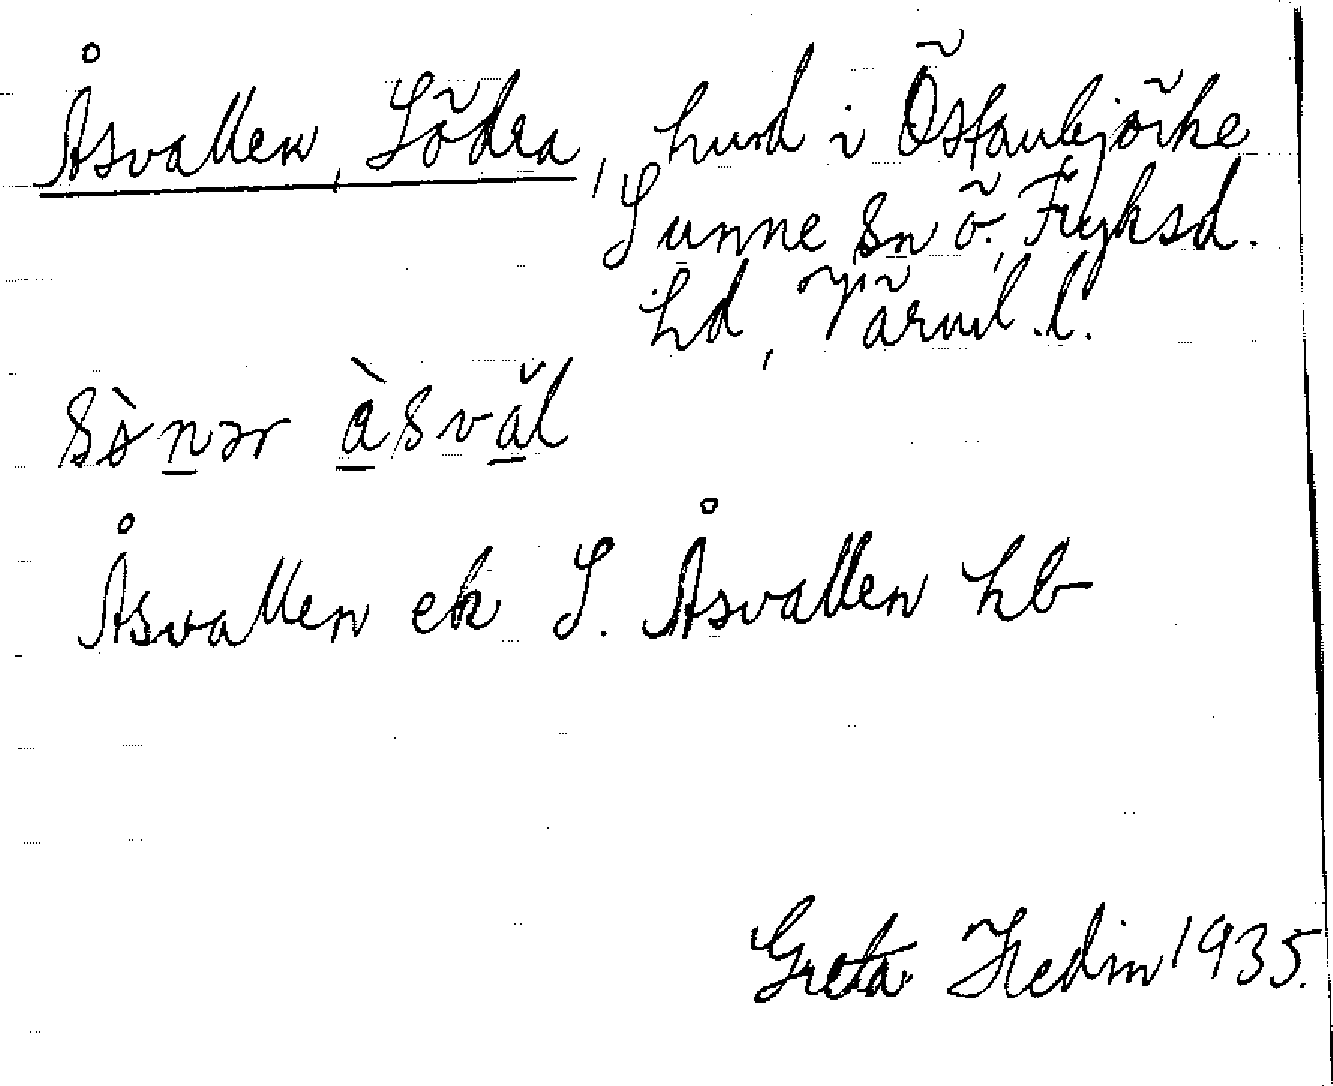 Åsvallen, Södra, hmd i Östanbjörke
Sunne sn ö., Fryksd.
hd, Värml. l.
sìnər àsvăl
Åsvallen ek S. Åsvallen hb
Greta Hedin 1935.